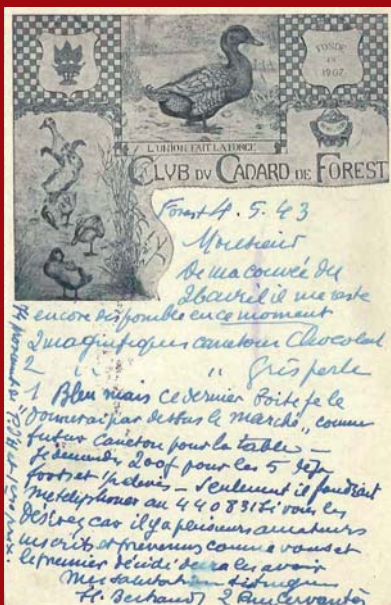 FONDÉ
EN
1907
L'UNION FAIT LA FORCE
CLVB DV CANARD DE FOREST
Forest 4.5.43
Monsieur
De ma couvée du
26 avril il me reste
encore disponible en ce moment
2 magnifiques canetons Chocolat
2 " " Gris perle
1 Bleu mais ce dernier boite je le
donnerai par dessus le marché, comme
futur caneton pour la table -
Je demande 200f pour les 5 déjà
forts et - Seulement il faudrait
me téléphoner au 440831 si vous les
désirez car il y a plusieurs amateurs
inscrits et prévenus comme vous et
le premier décidé devra les avoir
Mes salutations distinguées
H. Bertrand 2 Rue Cervantes